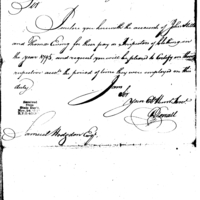 Sir
I enclose you herewith the accounts of John
and Thomas Ewing for their pay as Inspectors of Clothing in
the year 1795, and request you will be pleased to certify on their
respective accts the period of time they were employed on this
duty.
I am
Sir
your Obt Hum Servt
Samuel Hodgdon Esq